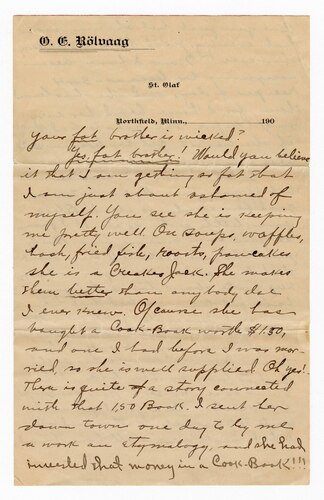 O. E. Rölvaag
St. Olaf
Northfield, Minn., 190
Your fat brother is wicked?
Yes, fat brother! Would you believe
it that I am getting so fat that
I am just about ashamed of
myself. You see she is keeping
me pretty well. On soups, waffles,
hash, fried fish, roasts, pancakes
she is a Creaker Jack. She makes
them better than anybody else
I ever knew. Ofcourse she has
bought a Cook-Book worth $1.50,
and one I had before I was mar-
ried, so she is well supplied. Oh yes!
There is quite a story connected
with that 1,50 Book. I sent her
down towne one day to by me
a work an Etymalogy, and she had
invested that money in a Cook-Book!!!